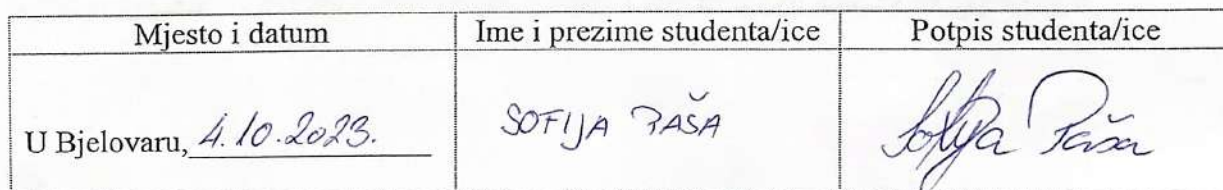 Mjesto i datum
Ime i prezime studenta/ice
Potpis studenta/ice
U Bjelovaru, 4.10.2023.
SOFIJA PAŠA
Sofija Paša